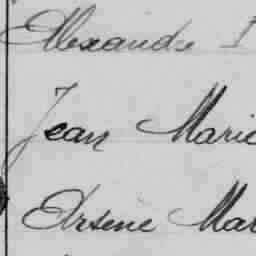 Alexandre
Jean Marie
Arsène Mar